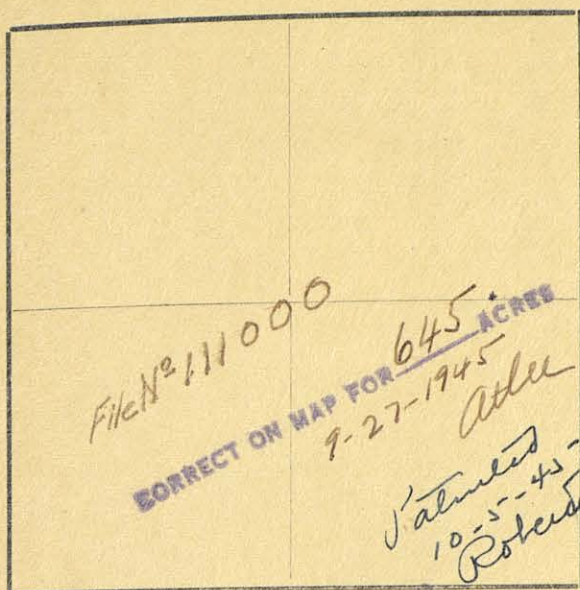 File No 111000
CORRECT ON MAP FOR 645 ACRES
9-27-1945
Atlee
Patented
10-5-45-